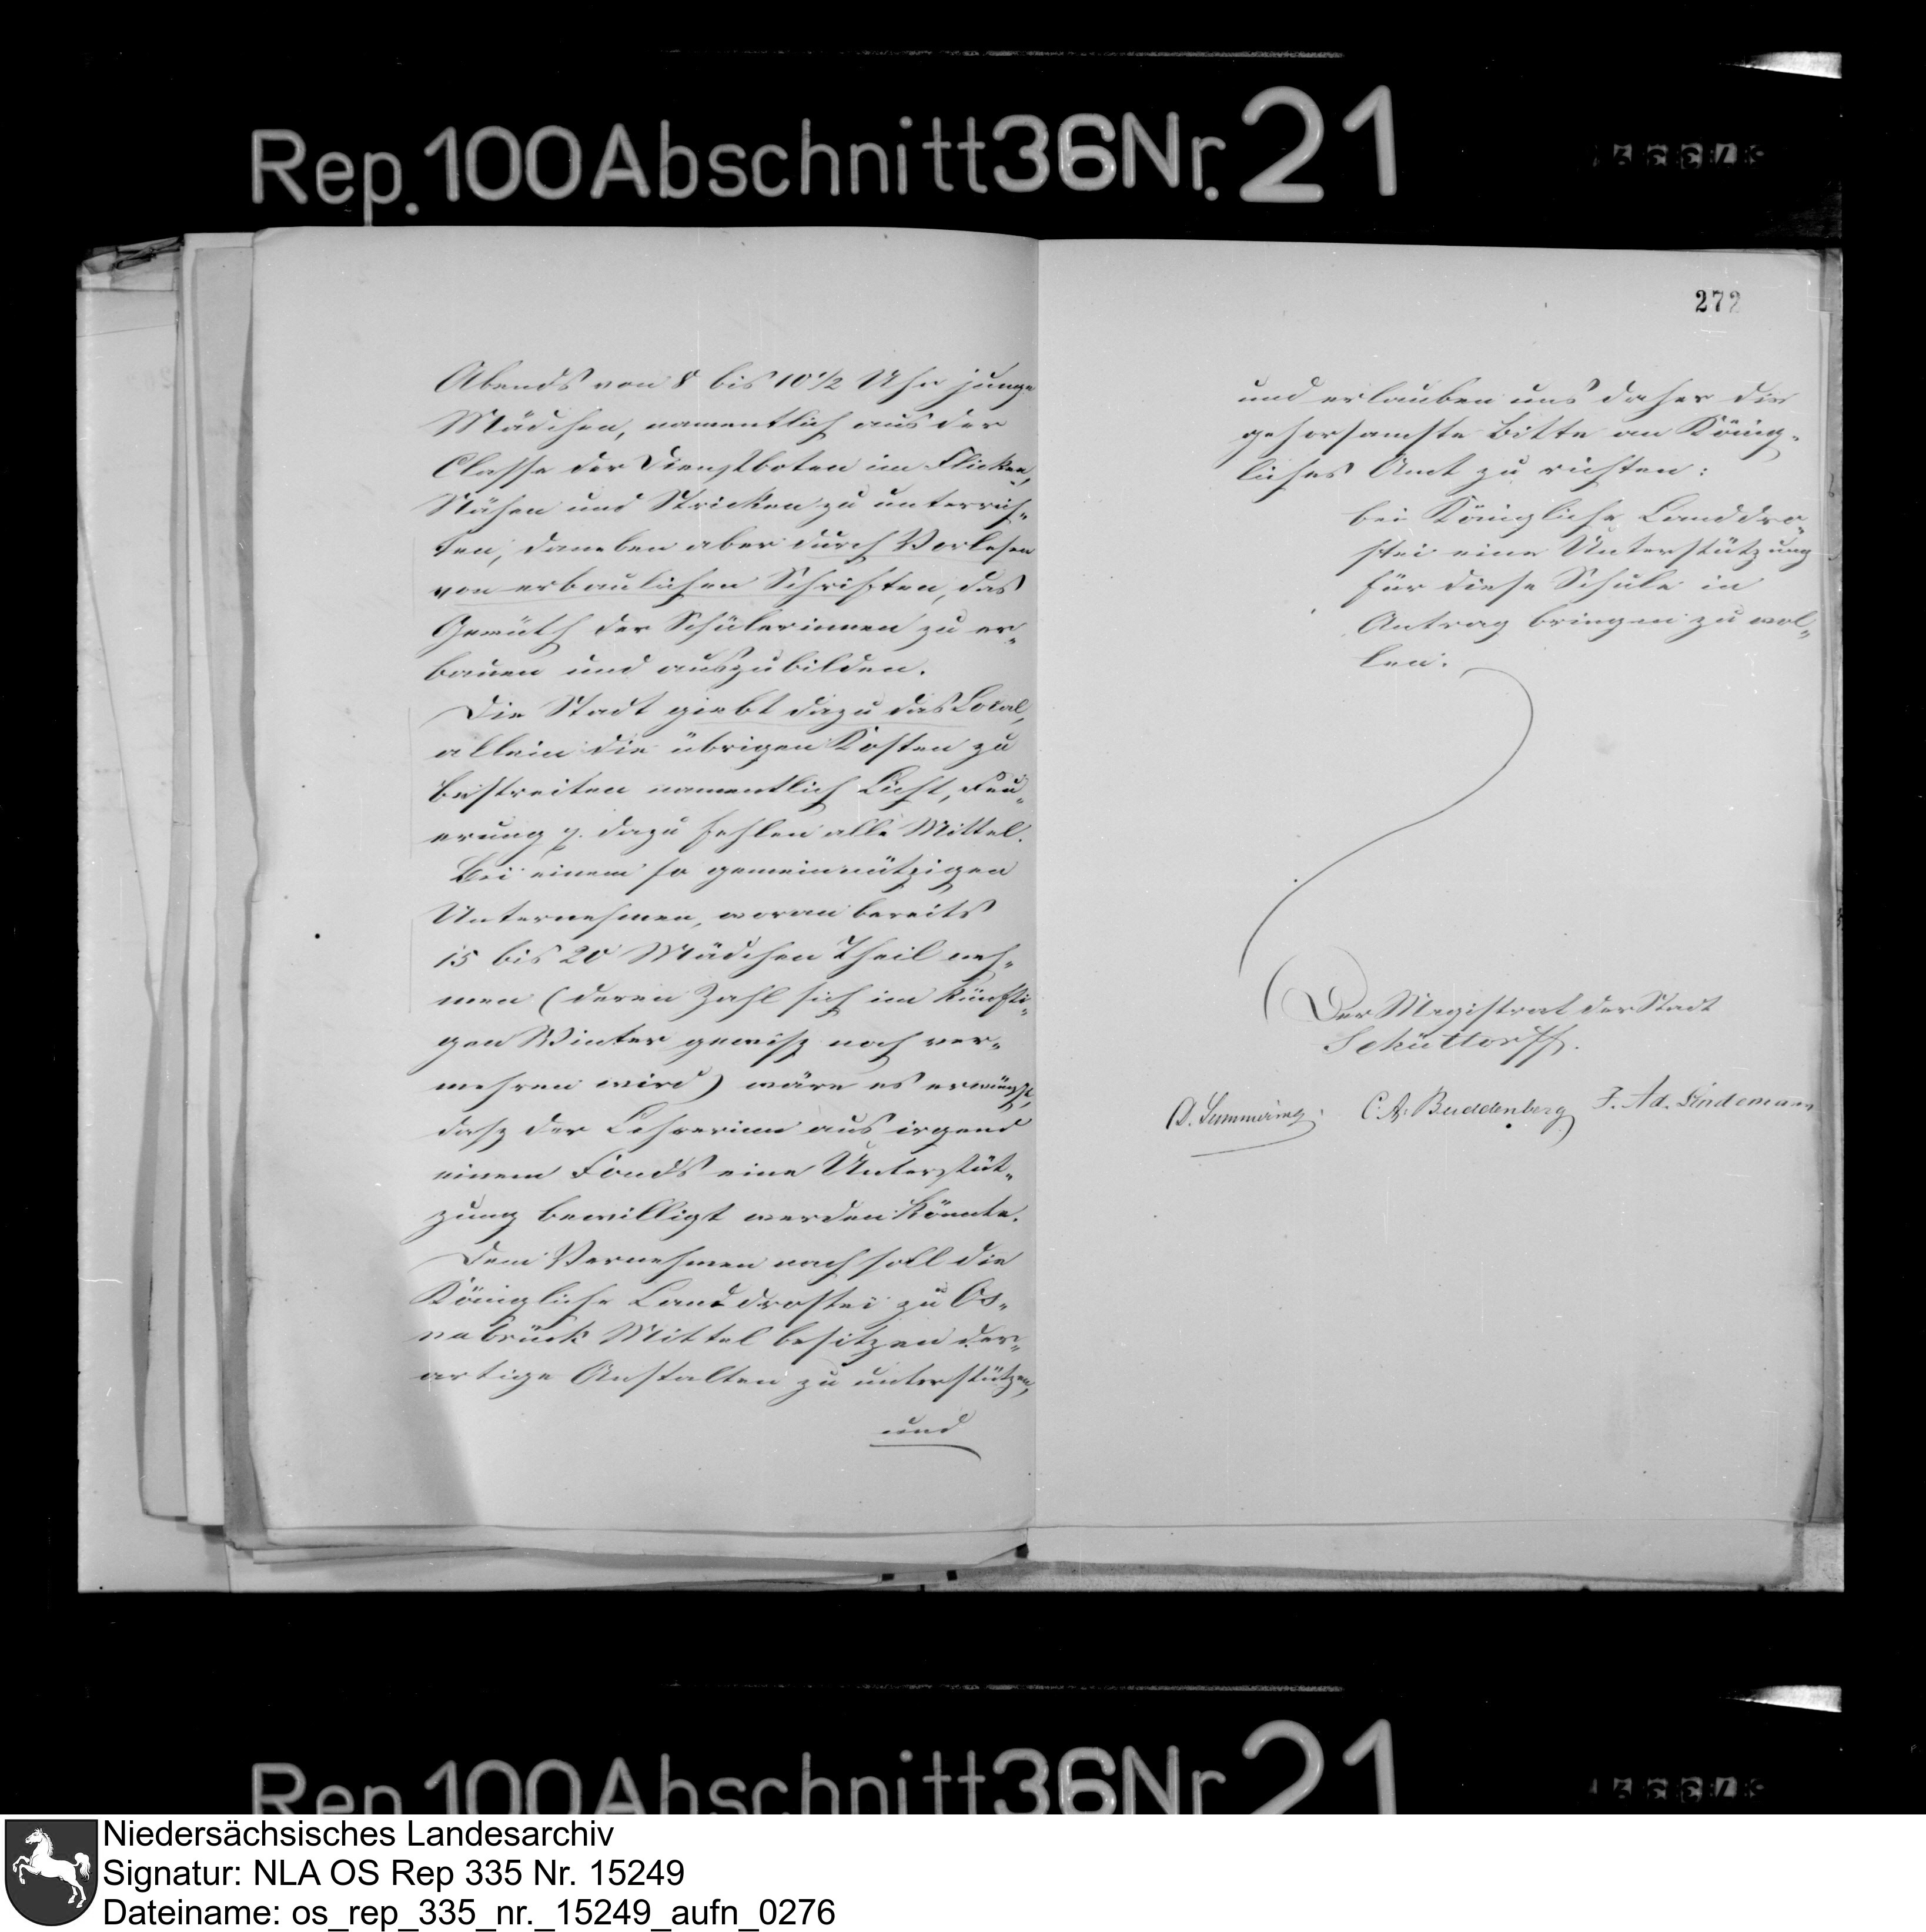 Rep. 100 Abschnitt 36 Nr. 21
Abends von 8 bis 10 1/2 Uhr junge
Mädchen, namentlich aus der
Classe der Dienstboten im Flicken,
Nähen und Stricken zu unterrich-
ten, daneben aber durch Vorlesen
von erbaulichen Schriften, das
Gemüth der Schülerinnen zu er-
bauen und auszubilden.
Die Stadt giebt dazu das Local,
allein die übrigen Kosten zu
bestreiten namentlich Licht, Feu-
erung p. dazu fehlen alle Mittel.
Bei einem so gemeinnützigen
Unternehmen, woran bereits
15 bis 20 Mädchen Theil neh-
men (deren Zahl sich im künfti-
gen Winter gewiß noch ver-
mehren wird) wäre es erwünscht,
daß der Lehrerinn aus irgend
einem Fonds eine Unterstüt-
zung bewilligt werden könnte.
Dem Vernehmen nach soll die
Königliche Landdrostei zu Os-
nabrück Mittel besitzen der-
artige Anstalten zu unterstützen,
und
272
und erlauben uns daher die
gehorsamste Bitte an König-
liches Amt zu richten:
bei Königliche Landdro-
stei eine Unterstützung
für diese Schule in
Antrag bringen zu wol-
len.
Der Magistrat der Stadt
Schüttorff.
Summering. C. A. Buddenberg F. Ad. Lindemann
Rep. 100 Abschnitt 36 Nr. 21
Niedersächsisches Landesarchiv
Signatur: NLA OS Rep 335 Nr. 15249
Dateiname: os_rep_335_nr._15249_aufn_0276